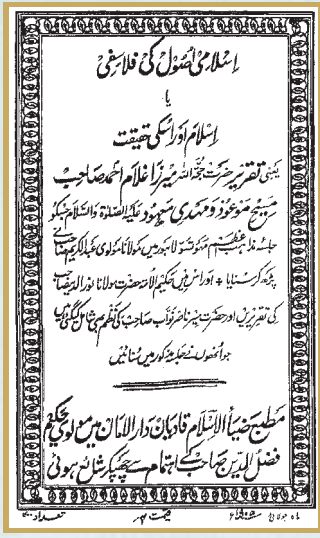 اسلامی اصول کی فلاسفی
یا
اسلام اور اسکی حقیقت
یعنی تقریر حضرت حجۃ اللہ میرزا غلام احمد صاحب
مسیح موعود و مہدی مسہود علیہ الصلوٰۃ والسلام جسکو
جلسہ مذاہب عظیم منعقدہ لاہور میں مولانا مولوی عبدالکریم صاحب نے
پڑھ کر سنایا + اور اس میں حکیم الامۃ حضرت مولانا نور الدین صاحب
کی تقریریں اور حضرت میر ناصر نواب صاحب کی نظم بھی شامل کی گئی
جو انھوں نے جلسہ مذکور میں سنائیں
مطبع ضیاء الاسلام قادیان دار الامان میں مولوی حکیم
فضل الدین صاحب کے اہتمام سے چھپکر شائع ہوئی
ماہ جولائی قیمت تعداد